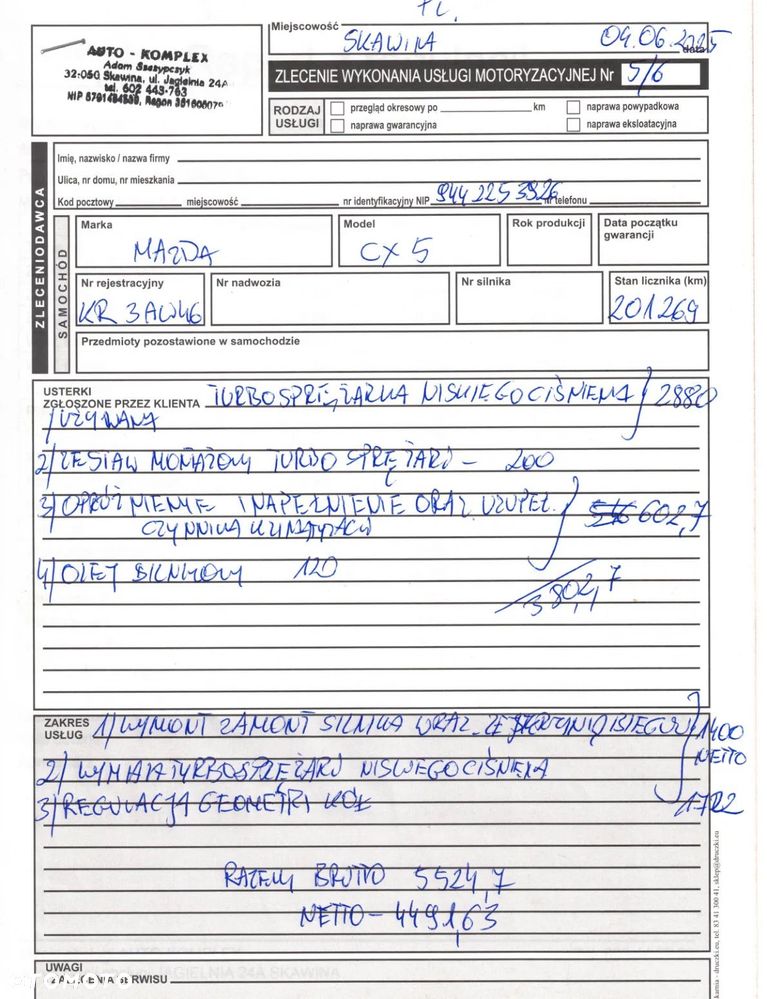 Miejscowość SKAWINA 04.06.2025 data
AUTO - KOMPLEX
Adam Szczypczyk
32-050 Skawina, ul. Jagielnia 24A
tel. 602 443-763
ZLECENIE WYKONANIA USŁUGI MOTORYZACYJNEJ Nr 5/6
RODZAJ USŁUGI
przegląd okresowy po km
naprawa powypadkowa
naprawa gwarancyjna
naprawa eksloatacyjna
ZLECENIODAWCA
Imię, nazwisko / nazwa firmy
Ulica, nr domu, nr mieszkania
Kod pocztowy miejscowość nr identyfikacyjny NIP 944 225 3926 nr telefonu
SAMOCHÓD
Marka MAZDA
Model CX 5
Rok produkcji
Data początku gwarancji
Nr rejestracyjny KR 3AW46
Nr nadwozia
Nr silnika
Stan licznika (km) 201269
Przedmioty pozostawione w samochodzie
USTERKI
ZGŁOSZONE PRZEZ KLIENTA TURBOSPRĘŻARKA NISKIEGO CIŚNIENIA 2880
1/ UŻYWANA
2/ ZESTAW MONTAŻOWY TURBO SPRĘŻARJ - 200
3/ OPRÓŻNIENIE I NAPEŁNIENIE ORAZ UZUPEŁ. 602,7
CZYNNIKA KLIMATYZACJI
4/ OLEJ SILNIKOWY 120
3802,7
ZAKRES USŁUG 1) WYMONT ZAMONT SILNIKA WRAZ ZE SKRZYNIĄ BIEGÓW 1400
NETTO
2) WYMIANA TURBOSPRĘŻARJ NISKIEGO CIŚNIENIA
3) REGULACJA GEOMETRI KÓŁ 1722
RAZEM BRUTTO 5524,7
NETTO - 4491,63
UWAGI
ZALECENIA SERWISU